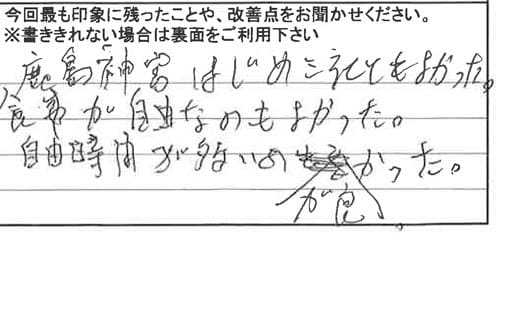 今回最も印象に残ったことや、改善点をお聞かせください。
※書ききれない場合は裏面をご利用下さい
鹿島神宮はじめとてもよかった。
食事が自由なのもよかった。
自由時間が多いのが良かった。